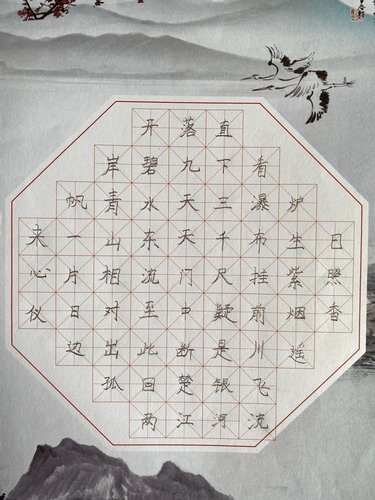 日照香
炉生紫烟遥
看瀑布挂前川飞流
直下三千尺疑是银河
落九天天门中断楚江
开碧水东流至此回两
岸青山相对出孤
帆一片日边
来心仪